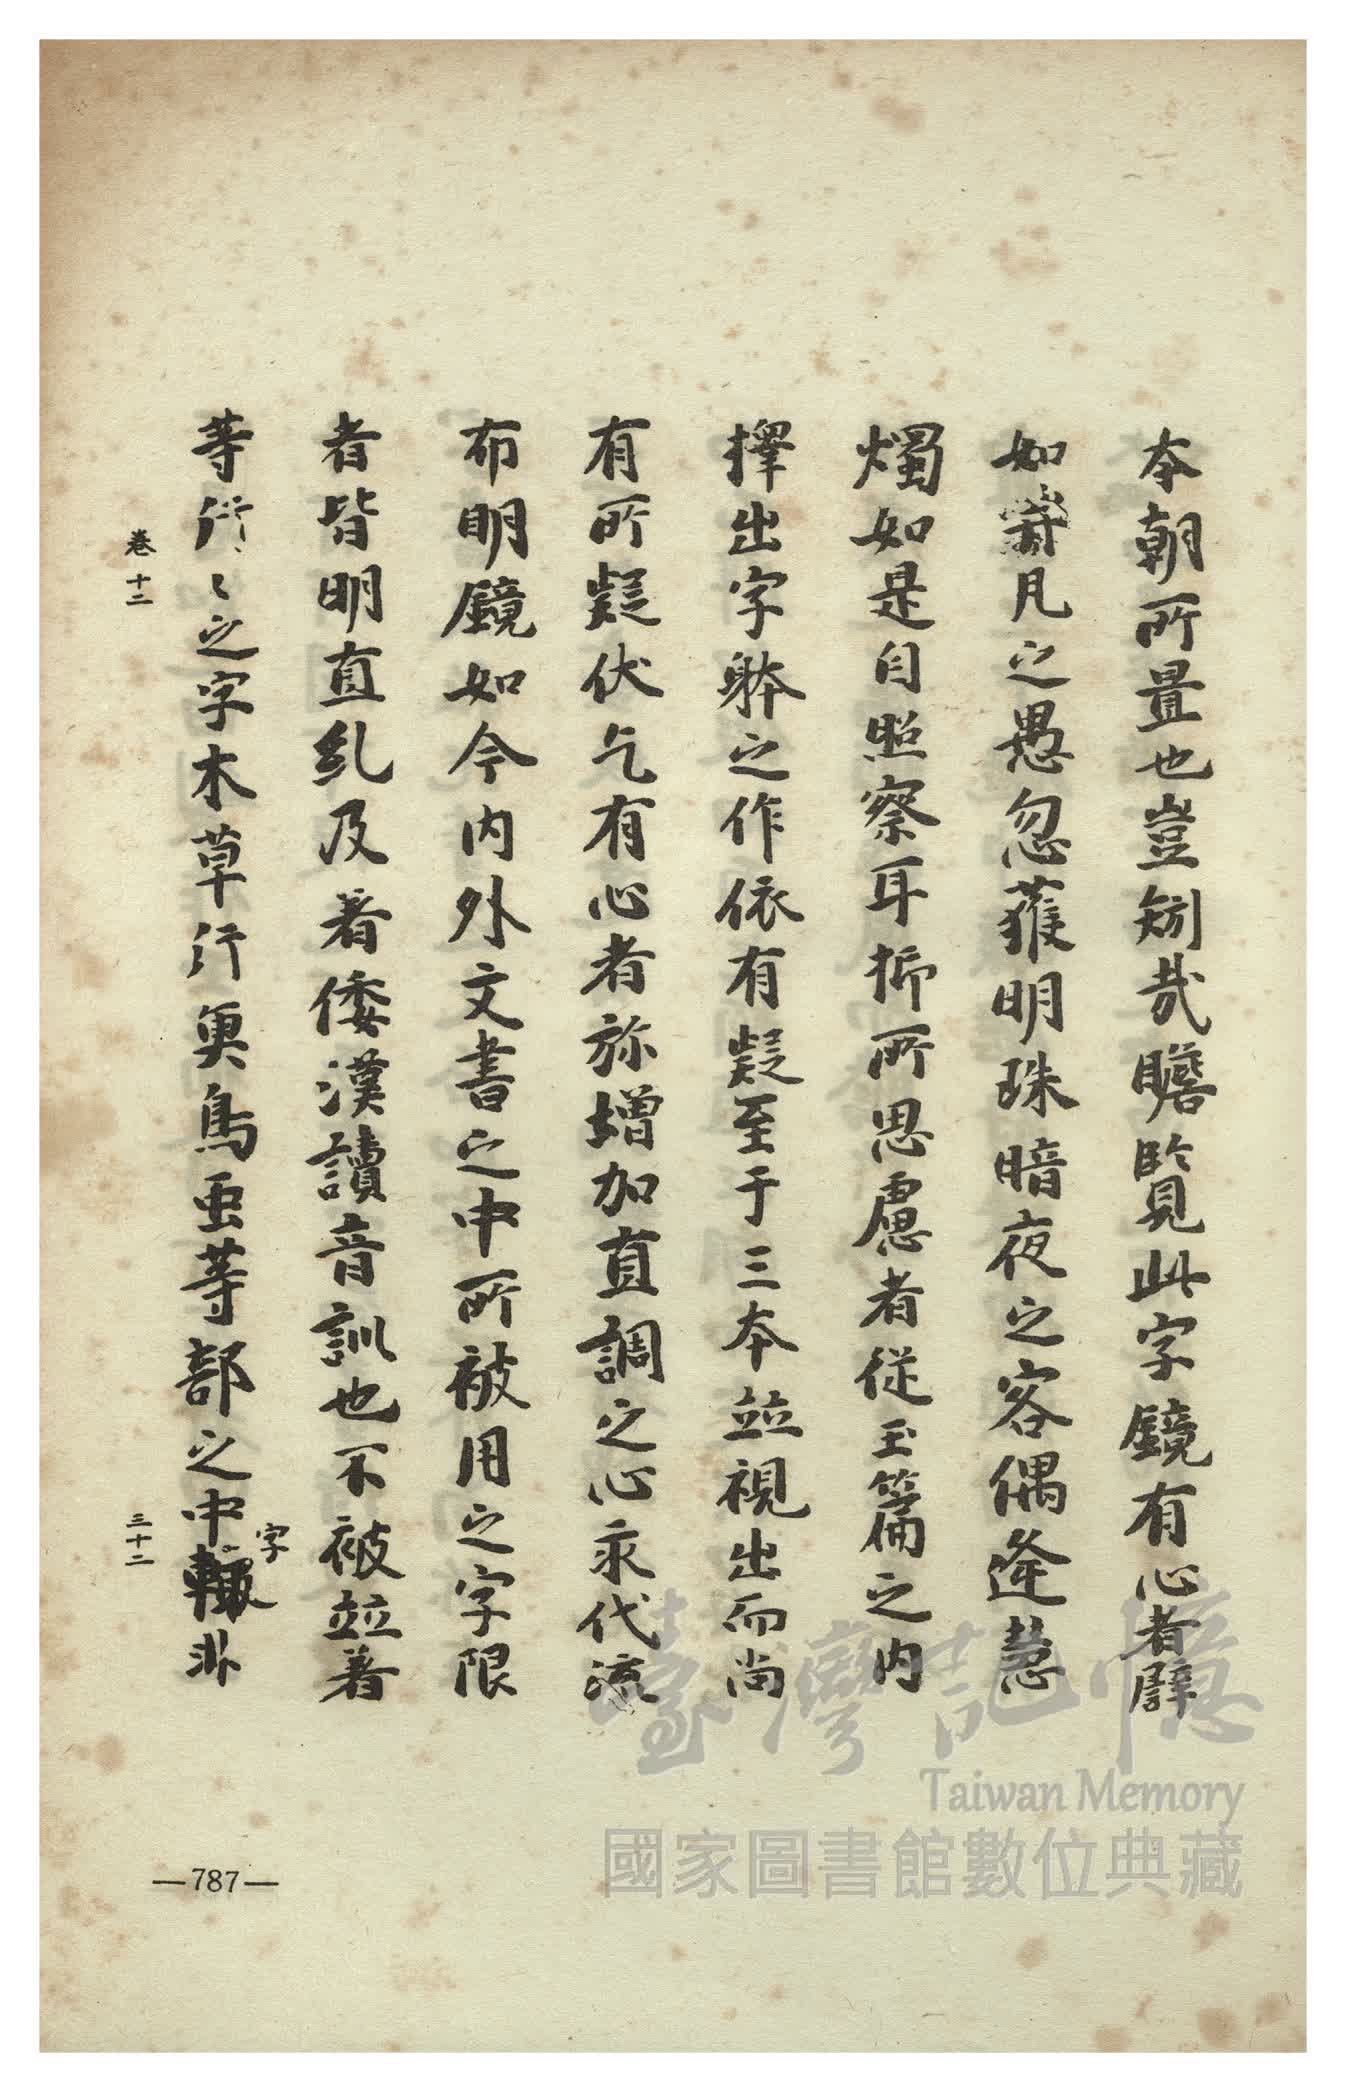 夲朝所畳也豈矧哉瞻覧此字鏡有心者譬
如凡之愚忽獲明珠暗夜之客偶逢慧
燭如是自照察耳抑所思慮者従玉篇之内
擇出字躰之作依有疑至于三夲並視出而尚
有所疑伏乞有心者弥増加直調之心永代流
布明鏡如今内外文書之中所被用之字限
者皆明直糺及着倭漢讀音訓也不被並着
等之字木草行魚鳥虫等部之中
字
卷十二
三十二
—787—
臺灣記憶
Taiwan Memory
國家圖書館數位典藏